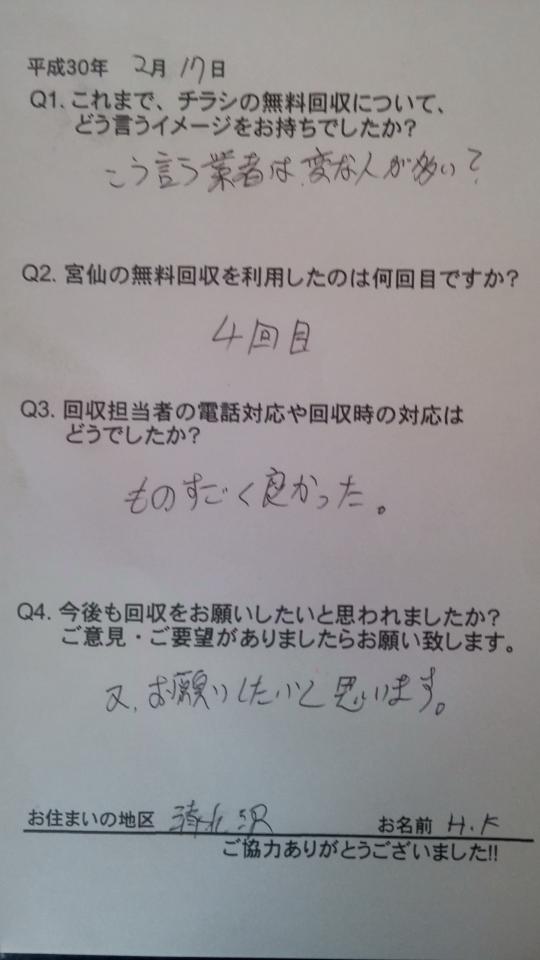 平成30年 2月 17日
Q1. これまで、チラシの無料回収について、
どう言うイメージをお持ちでしたか?
こう言う業者は、変な人が多い?
Q2. 宮仙の無料回収を利用したのは何回目ですか?
4回目
Q3. 回収担当者の電話対応や回収時の対応は
どうでしたか?
ものすごく良かった。
Q4. 今後も回収をお願いしたいと思われましたか?
ご意見・ご要望がありましたらお願い致します。
又、お願いしたいと思います。
お住まいの地区 清水沢 お名前 H.K
ご協力ありがとうございました!!